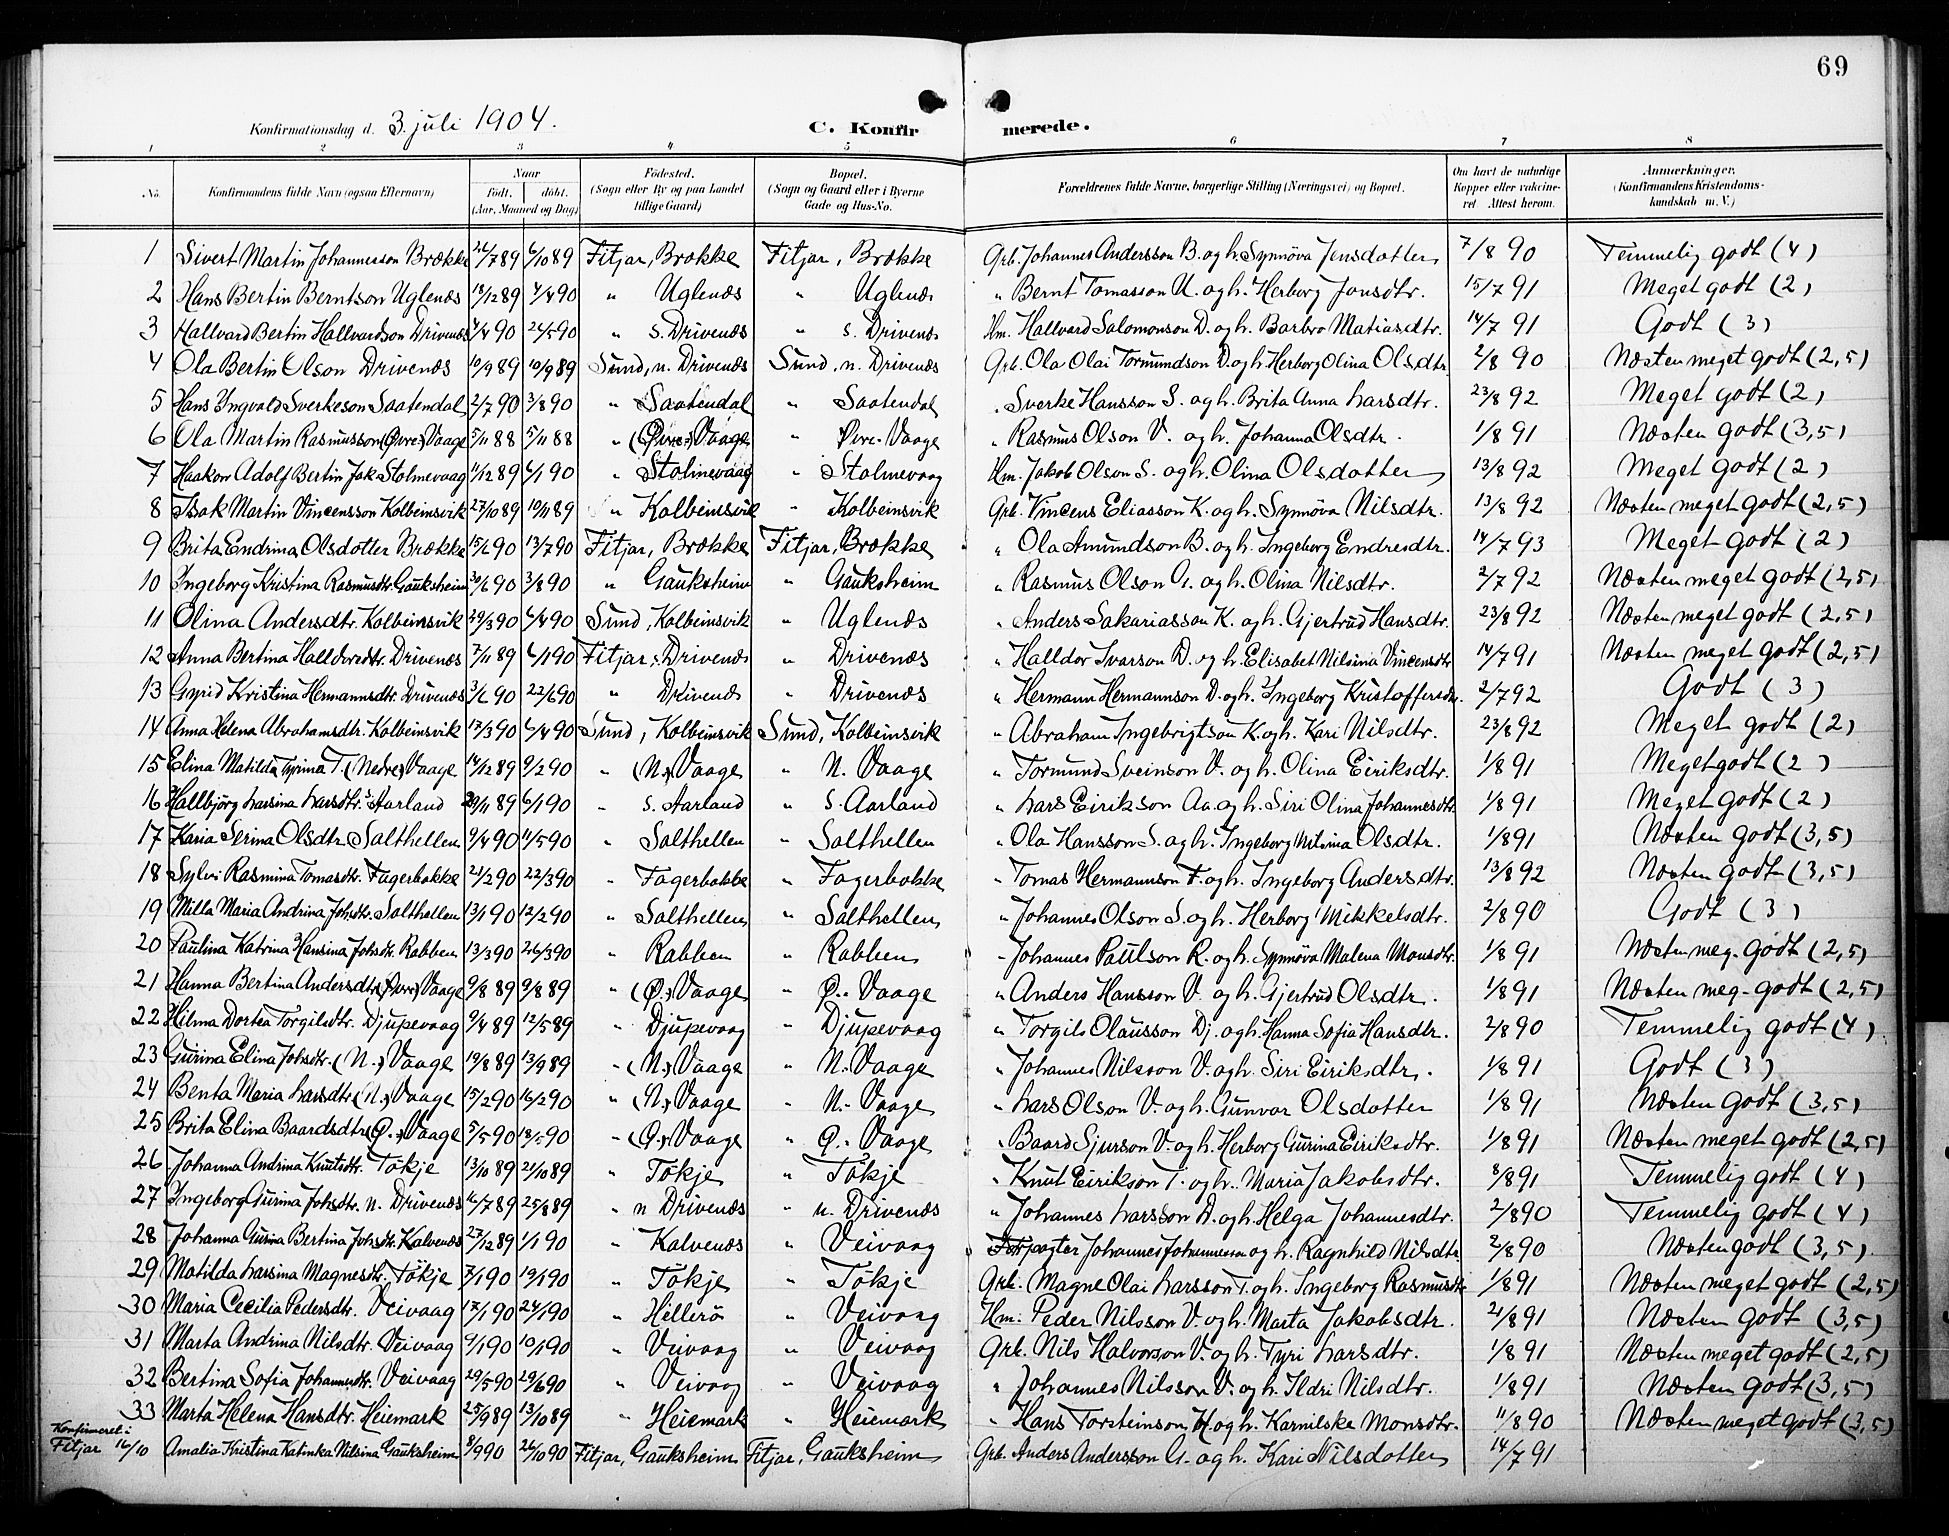 69
Konfirmationsdag d. 3. juli 1904.
C. Konfirmerede.
1 2 3 4 5 6 7 8
No. Konfirmandens fulde Navn (ogsaa Efternavn) Naar Født. døbt. (Aar, Maaned og Dag) Fødested. (Sogn eller By og paa Landet tillige Gaard) Bopæl. (Sogn og Gaard eller i Byerne Gade og Hus-No. Forældrenes fulde Navne, borgerlige Stilling (Næringsvei) og Bopæl. Om havt de naturlige Kopper eller vaccineret Attest herom. Anmærkninger. (Konfirmandens Kristendomskundskab m. V.)
1 Sivert Martin Johannesson Brække 24/7 89 6/10 89 Fitjar, Brække Fitjar, Brække Grb. Johannes Andersson B. og h. Synnøva Jensdotter 7/8 90 Temmelig godt (4)
2 Hans Bertin Berntson Uglenæs 18/12 89 4/4 90 " Uglenæs " Uglenæs " Bernt Tomasson U. og h. Herborg Jonsdtr. 15/7 91 Meget godt (2)
3 Hallvard Bertin Hallvardson Drivenæs 4/4 90 24/5 90 " S. Drivenæs " S. Drivenæs Hm. Hallvard Salomonson D. og h. Barbro Matiasdtr. 14/7 91 Godt (3)
4 Ola Bertin Olson Drivenæs 10/9 89 10/9 89 Sund, n. Drivenæs Sund, n. Drivenæs Grb. Ola Olai Tormundson D. og h. Herborg Olina Olsdtr. 2/8 90 Næsten meget godt (2,5)
5 Hans Yngvald Sverkeson Saatendal 2/7 90 3/8 90 " Saatendal " Saatendal " Sverke Hansson S. og h. Brita Anna Larsdtr. 23/8 92 Meget godt (2)
6 Ola Martin Rasmusson (Øvre) Vaage 5/11 88 5/11 88 " (Øvre) Vaage " Øvre Vaage " Rasmus Olson V. og h. Johanna Olsdtr. 1/8 91 Næsten godt (3,5)
7 Haakon Adolf Bertin Jak. Stolmevaag 11/12 89 6/1 90 " Stolmevaag " Stolmevaag Hm. Jakob Olson S. og h. Olina Olsdotter 13/8 92 Meget godt (2)
8 Isak Martin Vincensson Kolbeinsvik 27/10 89 10/11 89 " Kolbeinsvik " Kolbeinsvik Grb. Vincens Eliasson K. og h. Synnøva Nilsdtr. 13/8 92 Næsten meget godt (2,5)
9 Brita Endrina Olsdotter Brække 15/6 90 13/7 90 Fitjar, Brække Fitjar, Brække " Ola Amundson B. og h. Ingeborg Endresdtr. 14/7 93 Meget godt (2)
10 Ingeborg Kristina Rasmusdtr. Gauksheim 30/6 90 3/8 90 " Gauksheim " Gauksheim " Rasmus Olson G. og h. Olina Nilsdtr. 2/7 92 Næsten meget godt (2,5)
11 Olina Andersdtr. Kolbeinsvik 24/3 90 6/4 90 Sund, Kolbeinsvik " Uglenæs " Anders Sakariasson K. og h. Gjertrud Hansdtr. 23/8 92 Næsten meget godt (2,5)
12 Anna Bertina Halldorsdtr. Drivenæs 7/11 89 6/1 90 Fitjar, Drivenæs " Drivenæs " Halldor Ivarson D. og h. Elisabet Nilsina Vincensdtr 14/7 91 Næsten meget godt (2,5)
13 Gyrid Kristina Hermannsdtr. Drivenæs 3/6 90 22/6 90 " Drivenæs " Drivenæs " Hermann Hermannson D. og h. Ingeborg Kristoffersdtr. 2/7 92 Godt (3)
14 Anna Helena Abrahamsdtr. Kolbeinsvik 13/3 90 6/4 90 Sund, Kolbeinsvik Sund, Kolbeinsvik " Abraham Ingebrigtson K. og h. Kari Nilsdtr. 23/8 92 Meget godt (2)
15 Elina Matilda Tyrina T. (Nedre) Vaage 14/12 89 9/2 90 " (N.) Vaage " N. Vaage " Tormund Sveinson V. og h. Olina Eiriksdtr. 1/8 91 Meget godt (2)
16 Hallbjørg Larsina Larsdtr. S. Aarland 29/11 89 6/1 90 " S. Aarland " S. Aarland " Lars Eirikson Aa. og h. Siri Olina Johannesdtr 1/8 91 Meget godt (2)
17 Karia Serina Olsdtr. Salthellen 9/4 90 11/5 90 " Salthellen " Salthellen " Ola Hansson S. og h. Ingeborg Nilsina Olsdtr. 1/8 91 Næsten godt (3,5)
18 Sylvi Rasmina Tomasdtr. Fagerbakke 21/2 90 22/3 90 " Fagerbakke " Fagerbakke " Tomas Hermannson F. og h. Ingeborg Andersdtr. 13/8 92 Næsten godt (3,5)
19 Milla Maria Andrina Johsdtr. Salthellen 13/1 90 12/2 90 " Salthellen " Salthellen " Johannes Olson S. og h. Herborg Mikkelsdtr. 2/8 90 Godt (3)
20 Paulina Katrina Hansina Johsdtr. Rabben 13/3 90 26/3 90 " Rabben " Rabben " Johannes Paulson R. og h. Synnøva Malena Monsdtr. 1/8 91 Næsten meg. godt (2,5)
21 Hanna Bertina Andersdtr. (Øvre) Vaage 9/8 89 9/8 89 " (Ø.) Vaage " Ø. Vaage " Anders Hansson V. og h. Gjertrud Olsdtr. 1/8 91 Næsten meg. godt (2,5)
22 Hilma Dortea Torgilsdtr. Djupevaag 9/4 89 12/5 89 " Djupevaag " Djupevaag " Torgils Olausson Dj. og h. Hanna Sofia Hansdtr. 2/8 90 Temmelig godt (4)
23 Gurina Elina Johsdtr. (N.) Vaage 19/8 89 13/9 89 " (N.) Vaage " N. Vaage " Johannes Nilsson V. og h. Siri Eiriksdtr. 1/8 91 Godt (3)
24 Benta Maria Larsdtr. (N.) Vaage 15/2 90 16/2 90 " (N.) Vaage " N. Vaage " Lars Olson V. og h. Gunvor Olsdotter 1/8 91 Næsten godt (3,5)
25 Brita Elina Baardsdtr. (Ø.) Vaage 5/5 90 18/5 90 " (Ø.) Vaage " Ø. Vaage " Baard Sjurson V. og h. Herborg Gurina Eiriksdtr. 1/8 91 Næsten meget godt (2,5)
26 Johanna Andrina Knutsdtr. Tøkje 13/10 89 21/10 89 " Tøkje " Tøkje " Knut Eirikson T. og h. Maria Jakobsdtr. 8/8 91 Temmelig godt (4)
27 Ingeborg Gurina Johsdtr. n. Drivenæs 16/7 89 25/8 89 " n Drivenæs " n. Drivenæs " Johannes Larsson D. og h. Helga Johannesdtr. 2/8 90 Temmelig godt (4)
28 Johanna Gurina Bertina Johsdtr. Kalvenæs 27/12 89 1/1 90 " Kalvenæs " Veivaag Forpagter Johannes Johannesson og h. Ragnhild Nilsdtr 2/8 90 Næsten godt (3,5)
29 Matilda Larsina Magnesdtr. Tøkje 7/1 90 19/1 90 " Tøkje " Tøkje Grb. Magne Olai Larsson T. og h. Ingeborg Rasmusdtr 1/8 91 Næsten meget godt (2,5)
30 Maria Cecilia Pedersdtr. Veivaag 17/1 90 24/1 90 " Hillerø " Veivaag Hm. Peder Nilsson V. og h. Marta Jakobsdtr. 21/8 91 Næsten godt (3,5)
31 Marta Andrina Nilsdtr. Veivaag 9/1 90 10/1 90 " Veivaag " Veivaag Grb. Nils Halvorson V. og h. Tyri Larsdtr. 1/8 91 Næsten meget godt (2,5)
32 Bertina Sofia Johannesdtr. Veivaag 29/5 90 29/6 90 " Veivaag " Veivaag " Johannes Nilsson V. og h. Ildri Nilsdtr. 1/8 91 Næsten godt (3,5)
33 Marta Helena Hansdtr. Heiemark 25/9 89 13/10 89 " Heiemark " Heiemark " Hans Torsteinson H. og h. Karnilske Monsdtr. 11/8 90 Næsten meget godt (3,5)
Konfirmeret i
Fitjar 16/10 Amalia Kristina Katinka Nilsina Gauksheim 8/9 90 26/10 90 Fitjar, Gauksheim Fitjar, Gauksheim Grb. Anders Andersson G. og h. Kari Nilsdotter 14/7 91